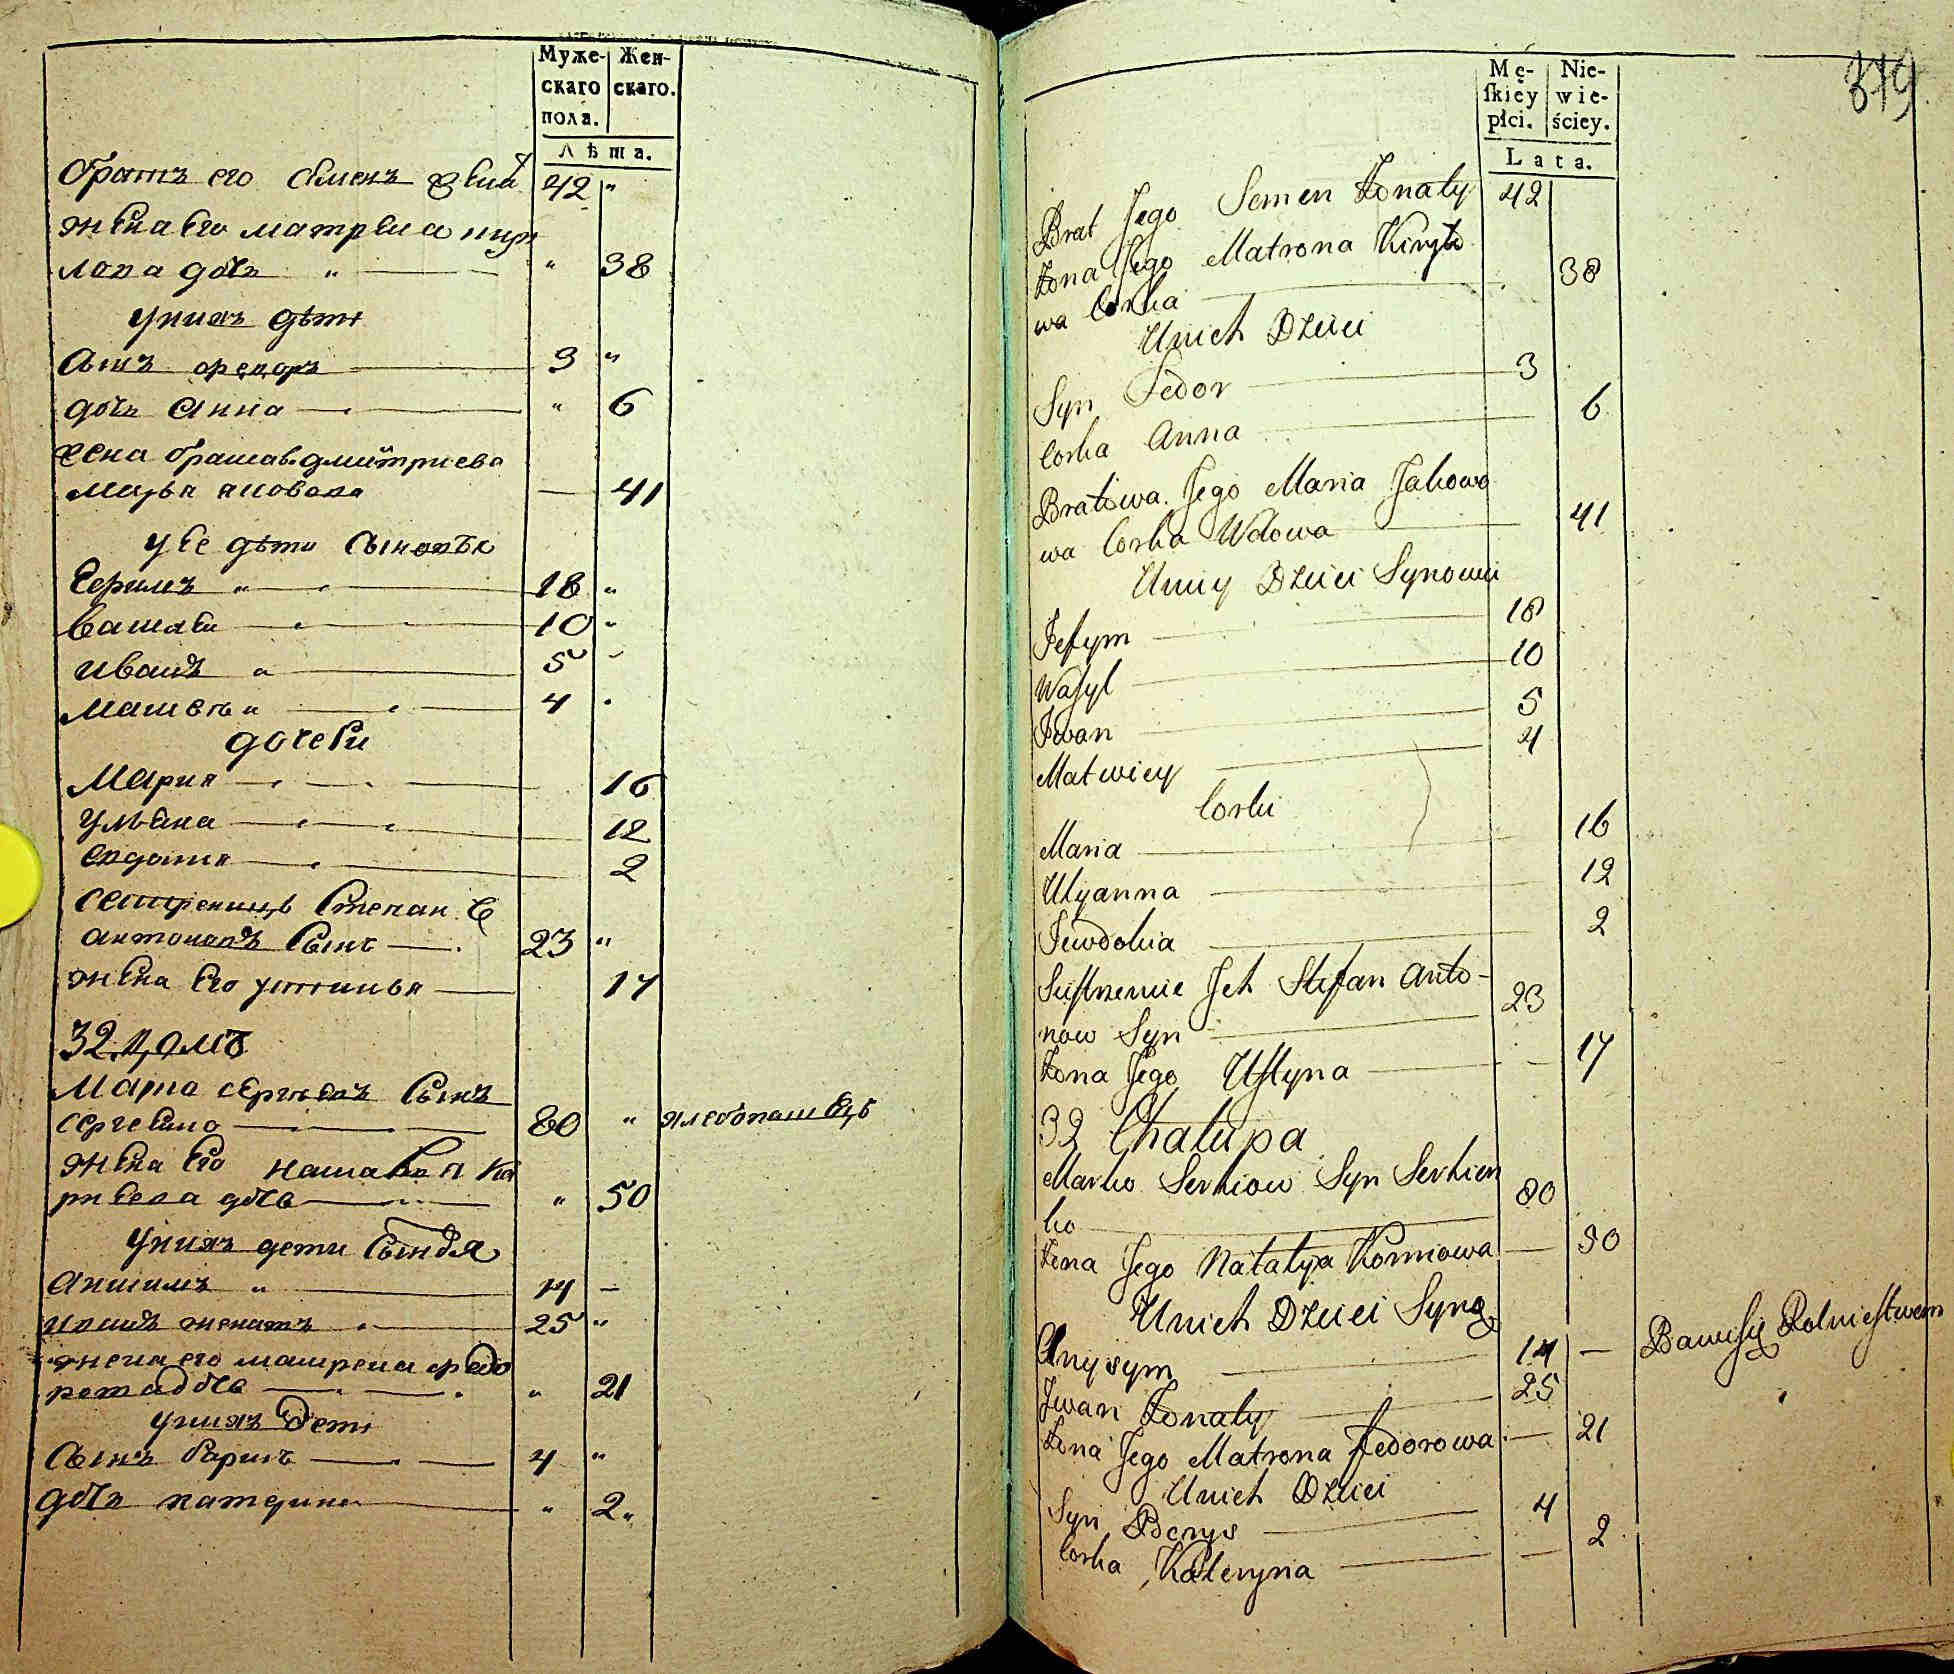 Муже-
скаго
пола.
Жен-
скаго.
Лѣта.
братъ его Семенъ 42 "
жена его матрена кири
лова дочь " " 38
унихъ дѣти
Сынъ федоръ 3 "
дочь Анна " 6
Марья яковова 41
у ее дѣти Сыновья
Ефимъ " 18 "
Василѣи 10 "
иванъ " 5
Матвѣи 4
дочеви
Мария 16
Ульяна 12
Евдокия 2
Степан
антоновъ Сынъ 23 "
жена его устинья 17
32. домъ
Марко сергѣевъ Сынъ
Сергеенко 80 " хлебопашець
жена его наталья Ко
рнеева дочь " 50
унихъ дети Сыновья
Анисимъ " 14 –
иванъ женатъ 25 "
жена его матрена федо
рова дочь " 21
унихъ Дети
Сынъ барисъ 4 "
дочь катерина " 2 "
379
Mę-
ſkiéy
płci.
Nie-
wie-
ściey.
Lata.
Brat Jego Semen Żonaty 42
Żona Jego Matrona Kiryło
wa Corka 38
Unich Dzieci
Syn Fedor 3
Corka Anna 6
Bratowa Jego Maria Jakowo
wa Corka Wdowa 41
Uniy Dzieci Synowie
Jefym 18
Waſyl 10
Jwan 5
Matwiey 4
Corki
Maria 16
Ulyanna 12
Jewdokia 2
Sieſtrzenic Jch Stefan Anto-
now Syn 23
Żona Jego Uſtyna 17
32 Chałupa
Marko Serhiow Syn Serhien
ko 80
Żona Jego Natalya Korniowa 50
Unich Dzieci Syny
Anysym 14 – Bawiſię Rolnictwem
Jwan Żonaty 25
Żona Jego Matrona Fedorowa 21
Unich Dzieci
Syn Borys 4
Corka Kateryna 2